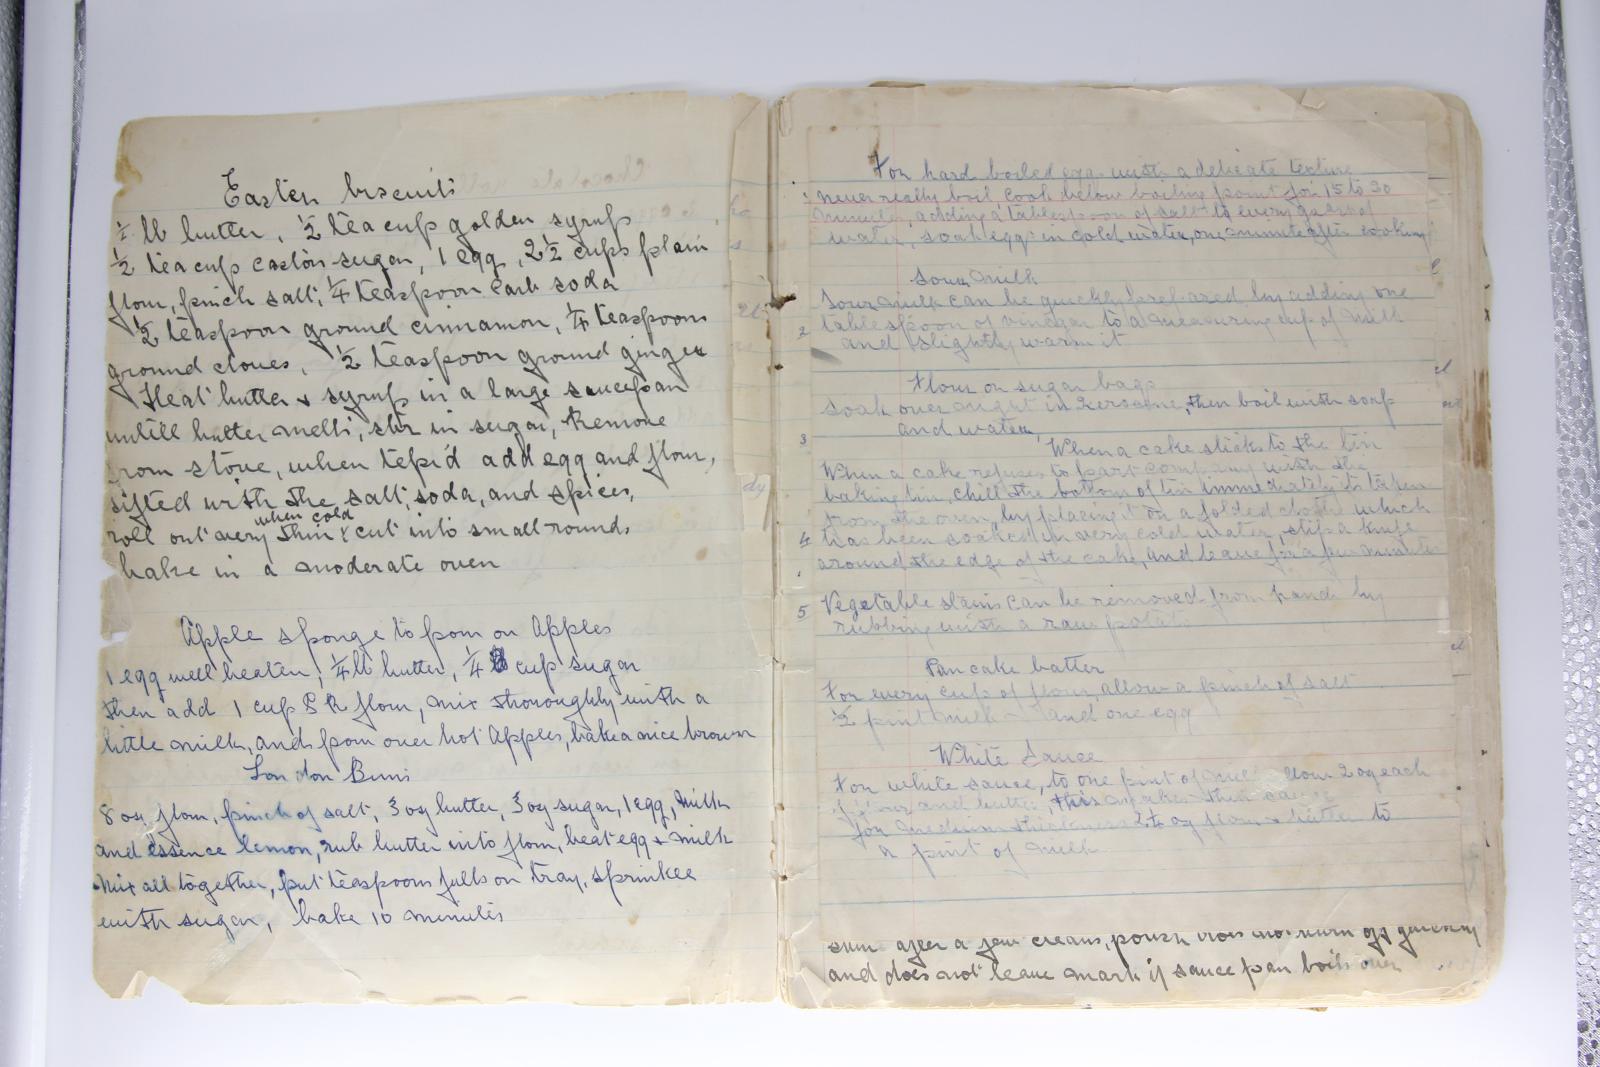 Easter biscuits
½ lb butter, ½ tea cup golden syrup
½ tea cup castor sugar, 1 egg, 2½ cups plain
flour, pinch salt, ¼ teaspoon Carb soda
½ teaspoon ground cinnamon, ¼ teaspoon
ground cloves, ½ teaspoon ground ginger
Heat butter & syrup in a large saucepan
untill butter melts, stir in sugar, Remove
from stove, when tepid add egg and flour,
sifted with the salt, soda, and spices,
when cold
roll out very thin & cut into small rounds
bake in a moderate oven
Apple sponge to pour on Apples
1 egg well beaten, ¼ lb butter, ¼ cup sugar
then add 1 cup S R flour, mix thoroughly with a
little milk, and pour over hot Apples, bake a nice brown
London Buns
8 oz flour, pinch of salt, 3 oz butter, 3 oz sugar, 1 egg, milk
and essence lemon, rub butter into flour, beat egg & milk
mix all together, put teaspoon fulls on tray, sprinkle
with sugar, bake 10 minutes
For hard boiled eggs with a delicate texture
1 never really boil Cook below boiling point for 15 to 30
minutes adding a tablespoon of salt to every quart of
water, soak eggs in cold water, one minute after cooking
Sour milk
Sour milk can be quickly prepared by adding one
2 tablespoon of vinegar to a measuring cup of milk
and slightly warm it
Flour or sugar bags
soak over night in Kerosene, then boil with soap
3 and water
When a cake sticks to the tin
When a cake refuses to part company with the
baking tin, chill the bottom of tin immediately its taken
from the oven, by placing it on a folded clothe which
4 has been soaked in very cold water, slip a knife
around the edge of the cake, and leave for a few minutes
5 Vegetable stains can be removed from hands by
rubbing with a raw potato
Pan cake batter
For every cup of flour, allow a pinch of salt
½ pint milk and one egg
White Sauce
For white sauce, to one pint of milk allow 2 oz each
flour and butter, this makes thin sauce
for medium thickness oz flour & butter to
a pint of milk
after a few creams, polish does not burn off quickly
and does not leave mark if sauce pan boils over